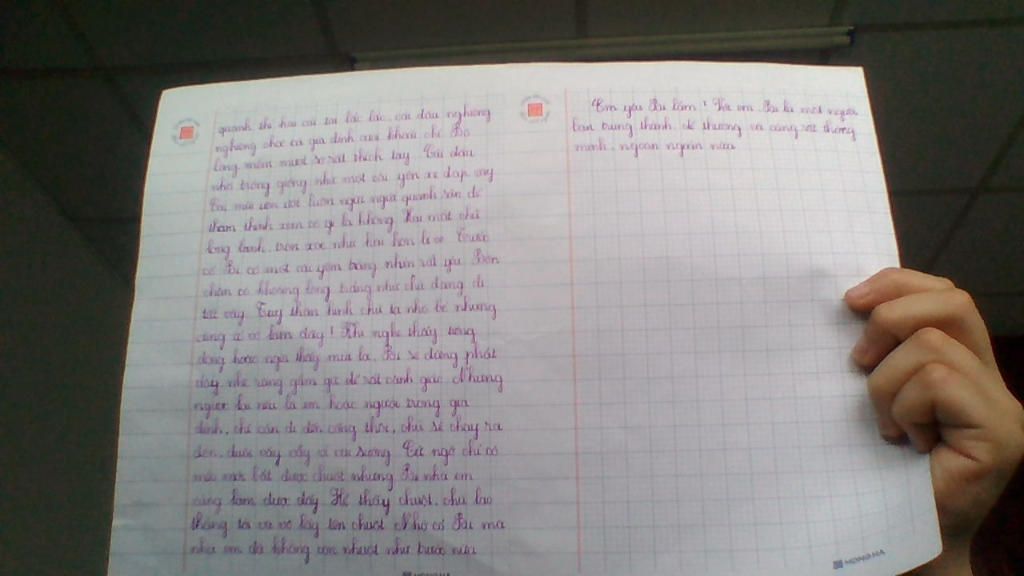 quanh thì hai cái tai lúc lắc, cái đầu nghiêng
nghiêng chọc cả gia đình cười khoái chí. Bộ
lông mềm mượt sờ rất thích tay. Cái đầu
nhỏ trông giống như một cái yên xe đạp vậy
Cái mũi ươn ướt luôn ngửi ngửi quanh sân để
thám thính xem có gì lạ không. Hai mắt chú
long lanh, tròn xoe như hai hòn bi ve. Trước
cổ Bi có một cái yếm trắng nhìn rất yêu. Bốn
chân có khoang lông trắng như chú đang đi
tất vậy. Tuy thân hình chú ta nhỏ bé nhưng
cũng lắm đấy! Khi nghe thấy tiếng
động hoặc ngửi thấy mùi lạ, Bi sẽ đứng phắt
dậy, nhe răng gầm gừ để rất cảnh giác. Nhưng
ngược lại nếu là em hoặc người trong gia
đình, chỉ cần đi đến cổng thôi, chú sẽ chạy ra
đón, đuôi vẫy vẫy vẻ vui sướng. Cứ ngỡ chỉ có
mèo mới bắt được chuột nhưng Bi nhà em
cũng làm được đấy. Hễ thấy chuột, chú lao
thẳng tới và vồ lấy tên chuột. Nhờ có Bi mà
nhà em đã không còn chuột như trước nữa
Em yêu Bi lắm! Với em Bi là một người
bạn trung thành, dễ thương và cũng rất thông
minh, ngoan ngoãn nữa
HONG HA